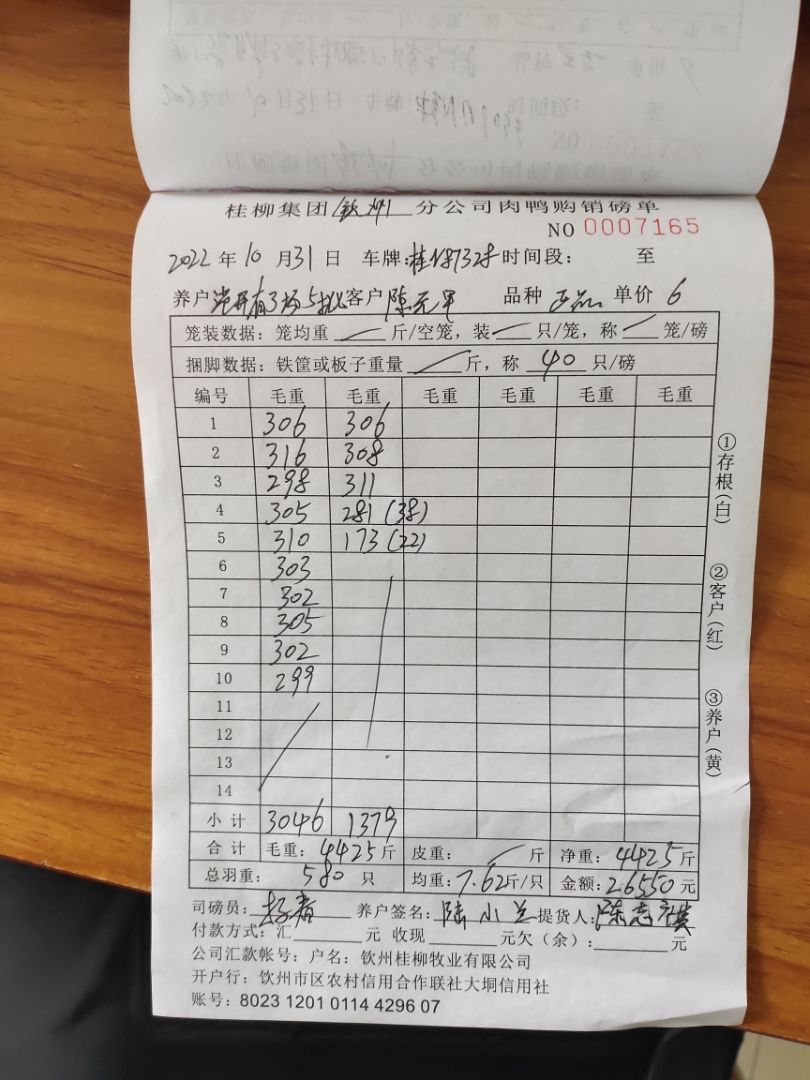 桂柳集团 钦州 分公司肉鸭购销磅单
NO 0007165
2022 年 10 月 31 日 车牌: 时间段: 至
养户 3场5批 客户 陈元军 品种 正品 单价 6
笼装数据: 笼均重 斤/空笼, 装 只/笼, 称 笼/磅
捆脚数据: 铁筐或板子重量 斤, 称 40 只/磅
编号 毛重 毛重 毛重 毛重 毛重 毛重
1 306 306
2 316 308
3 298 311
4 305 281 (38)
5 310 173 (22)
6 303
7 302
8 305
9 302
10 299
11
12
13
14
小计 3046 1379
合计 毛重: 4425 斤 皮重: 斤 净重: 4425 斤
总羽重: 580 只 均重: 7.62 斤/只 金额: 26550 元
司磅员: 养户签名: 陆小兰 提货人:
付款方式: 汇 元 收现 元欠(余): 元
公司汇款帐号: 户名: 钦州桂柳牧业有限公司
开户行: 钦州市区农村信用合作联社大垌信用社
账号: 8023 1201 0114 4296 07
①存根(白)
②客户(红)
③养户(黄)